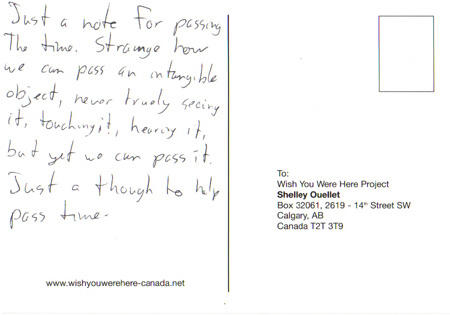 Just a note for passing
The time. Strange how
we can pass an intangible
object, never truely seeing
it, touching it, hearing it,
but yet we can pass it.
Just a though to help
pass time.
www.wishyouwerehere-canada.net
To:
Wish You Were Here Project
Shelley Ouellet
Box 32061, 2619 - 14th Street SW
Calgary, AB
Canada T2T 3T9